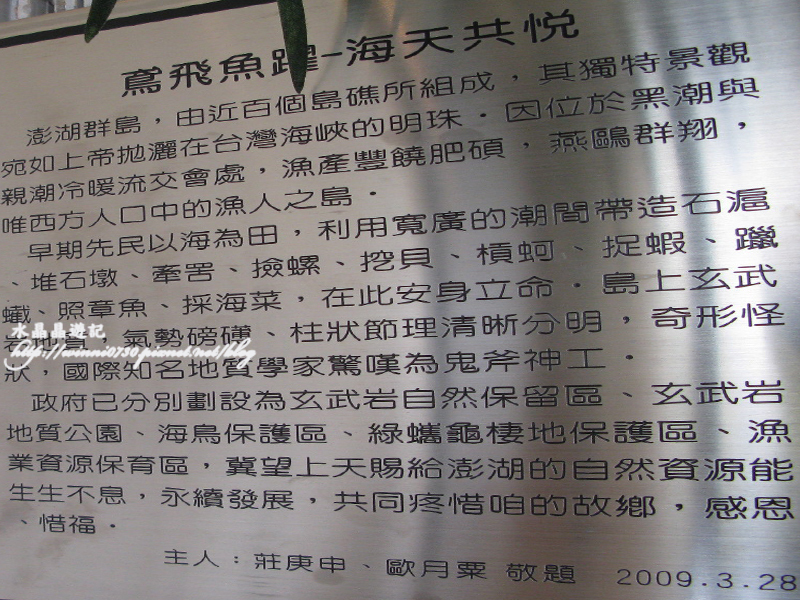 鳶飛魚躍-海天共悅
澎湖群島，由近百個島礁所組成，其獨特景觀
宛如上帝拋灑在台灣海峽的明珠．因位於黑潮與
親潮冷暖流交會處，漁產豐饒肥碩，燕鷗群翔，
唯西方人口中的漁人之島．
早期先民以海為田，利用寬廣的潮間帶造石滬
、堆石墩、牽罟、撿螺、挖貝、槓蚵、捉蝦、躐
蠘、照章魚、採海菜，在此安身立命．島上玄武
岩地質，氣勢磅礡、柱狀節理清晰分明，奇形怪
狀，國際知名地質學家驚嘆為鬼斧神工．
政府已分別劃設為玄武岩自然保留區、玄武岩
地質公園、海鳥保護區、綠蠵龜棲地保護區、漁
業資源保育區，冀望上天賜給澎湖的自然資源能
生生不息，永續發展，共同疼惜咱的故鄉，感恩
、惜福．
主人：莊庚申、歐月粟 敬題 2009.3.28
水晶晶遊記
http://winni0730.pixnet.net/blog